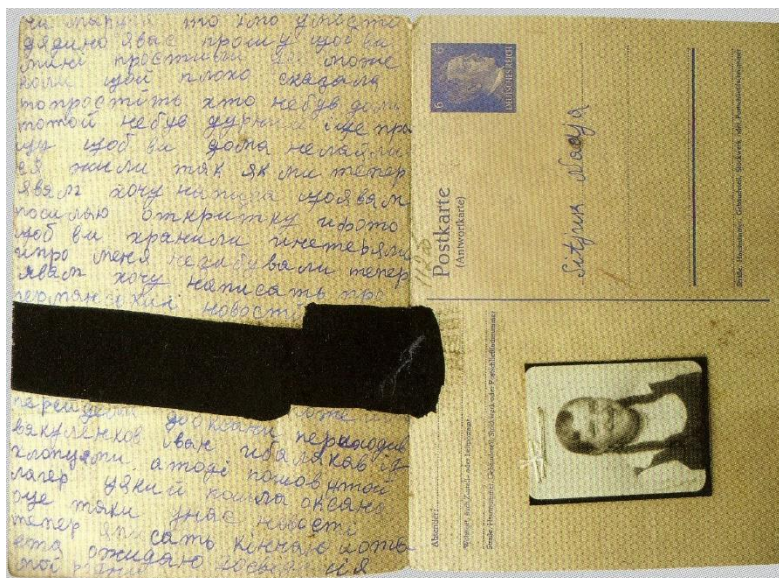 чи маручи то хто
дядино явас прошу щоб ви
мини простили може
коли щой плохо сказала
топростіть хто небув
тотой небув дурний іще про
шу щоб ви дома нелайли
ся жили так як ми тепер
явам хочу написа щоявам
посилью открітку ифото
щоб ви хранили инетеряли
ипро меня незабували тепер
явам хочу написать про
новости
перходив
вакуленков іван ибалакав із
хлопцями атоді пошов утой
лагер уякий пошла оксана
оце таки унас новості
тепер яписать кінчаю
ета ожидаю
6
6
DEUTSCHES REICH
Postkarte
(Antwortkarte)
Sitjuk Nadja
Straße, Hausnummer, Gebäudeteil, Stockwerk oder Postschließfachnummer
Absender:
Wohnort, auch Zustell- oder Leitpostamt
Straße, Hausnummer, Gebäudeteil, Stockwerk oder Postschließfachnummer